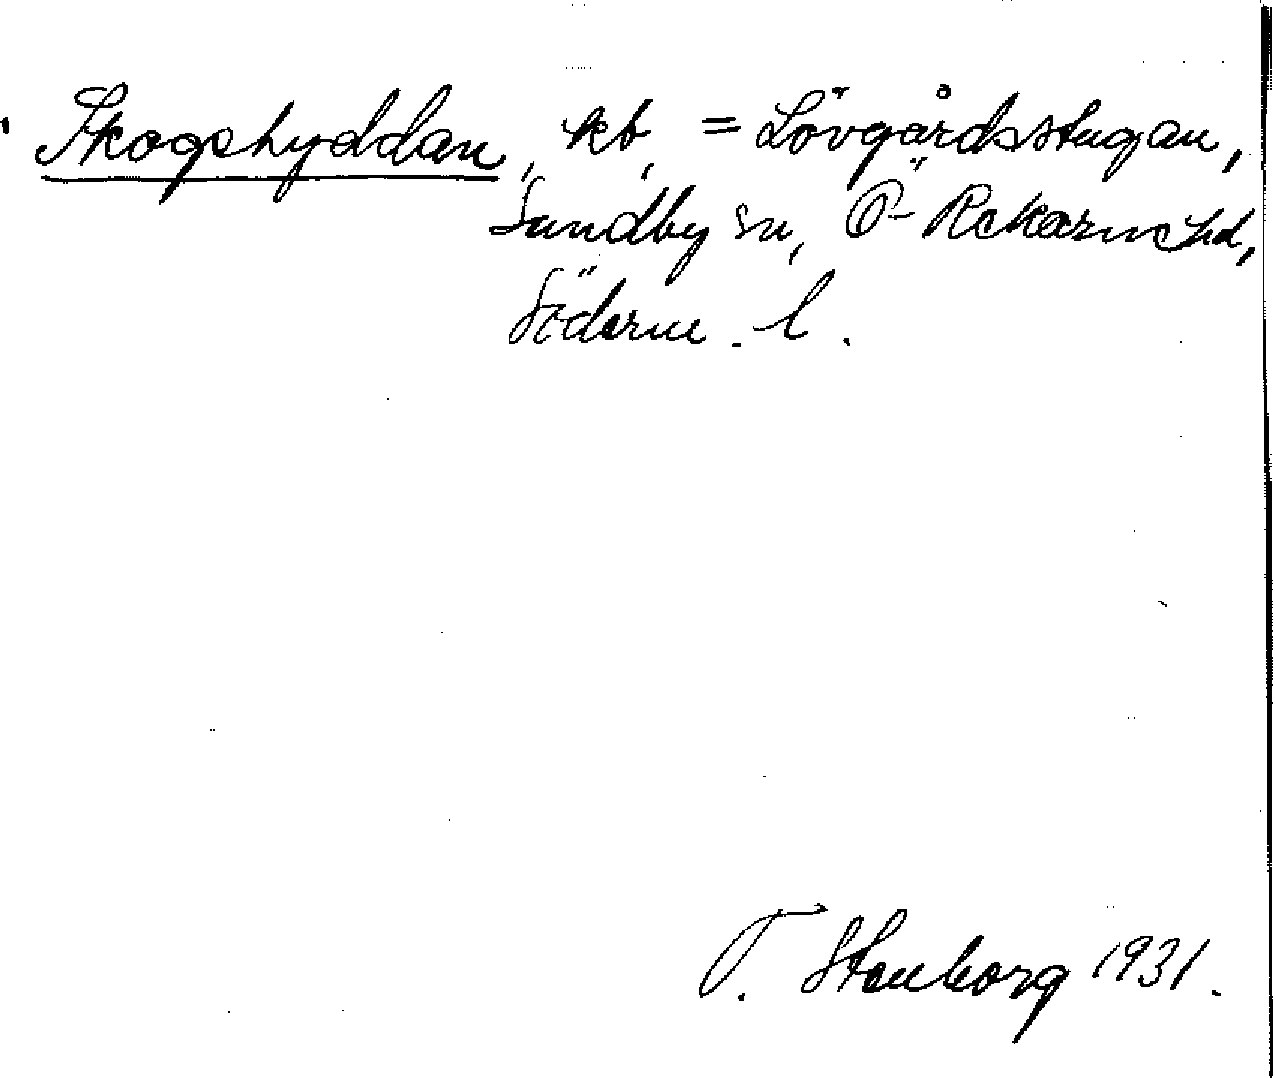 Skogshyddan, kt, = Lövgårdsstugan,
Sundby sn, Ö-Rekarne hd,
Söderm. l.
T. Stenborg 1931.